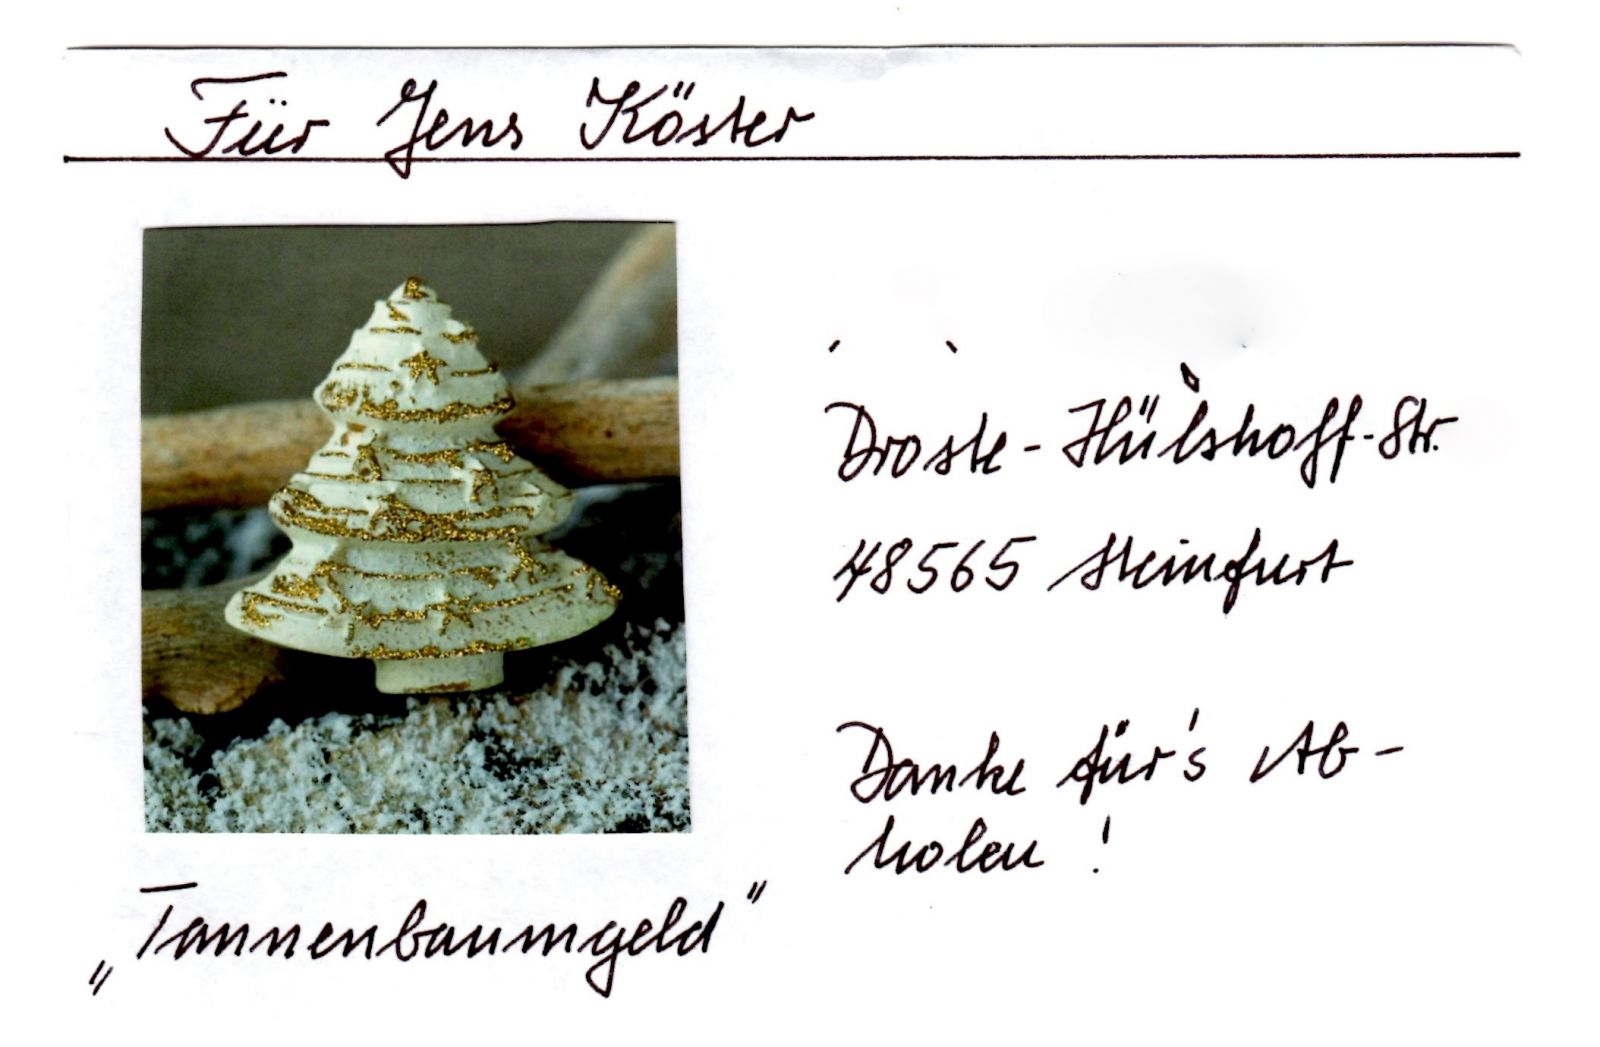 Für Jens Köster
Droste-Hülshoff-Str.
48565 Steinfurt
Danke für's Ab-
holen!
„Tannenbaumgeld"